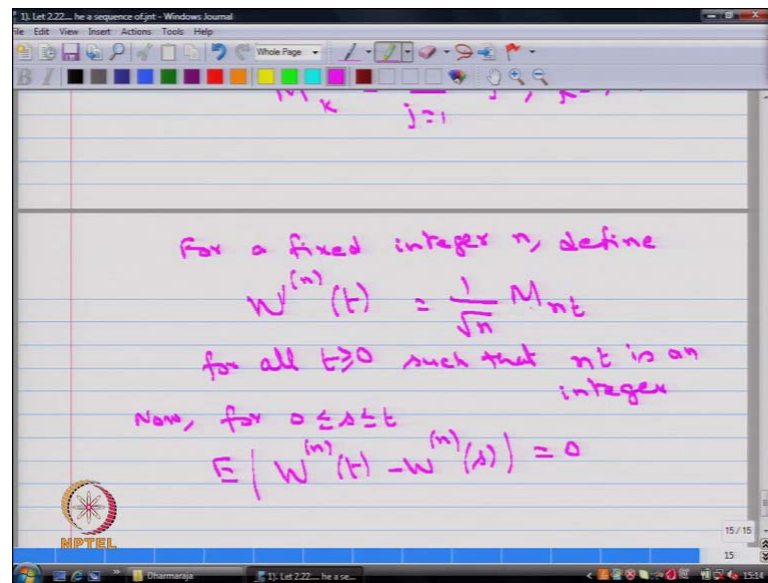 1). Let 2.22.... he a sequence of.jnt - Windows Journal
File Edit View Insert Actions Tools Help
Whole Page
B I
M_k = j=1
For a fixed integer n, define
W^(n)(t) = 1/√n M_nt
for all t≥0 such that nt is an
integer
Now, for 0 ≤ s ≤ t
E( W^(n)(t) - W^(n)(s) ) = 0
NPTEL
15 / 15
15
Dharmaraja
1). Let 2.22.... he a se...
15:14